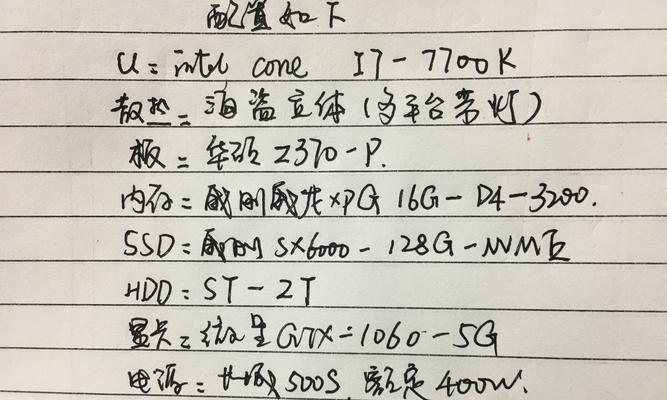 配置如下
U: intel core I7-7700K
散热: 海盗立体(多平台带灯)
板: 华硕Z370-P.
内存: 威刚威龙XPG 16G-D4-3200.
SSD: 威刚SX6000-128G-NVME
HDD: ST-2T
显卡: 微星GTX-1060-5G
电源: 长城500S 额定400W.